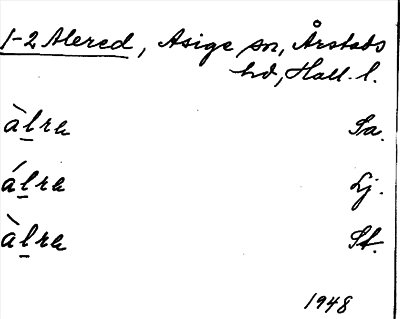 1-2 Alered, Asige sn, Årstads
hd, Hall. l.
àl̲ra Sa.
ál̲ra Lj.
àl̲ra St.
1948